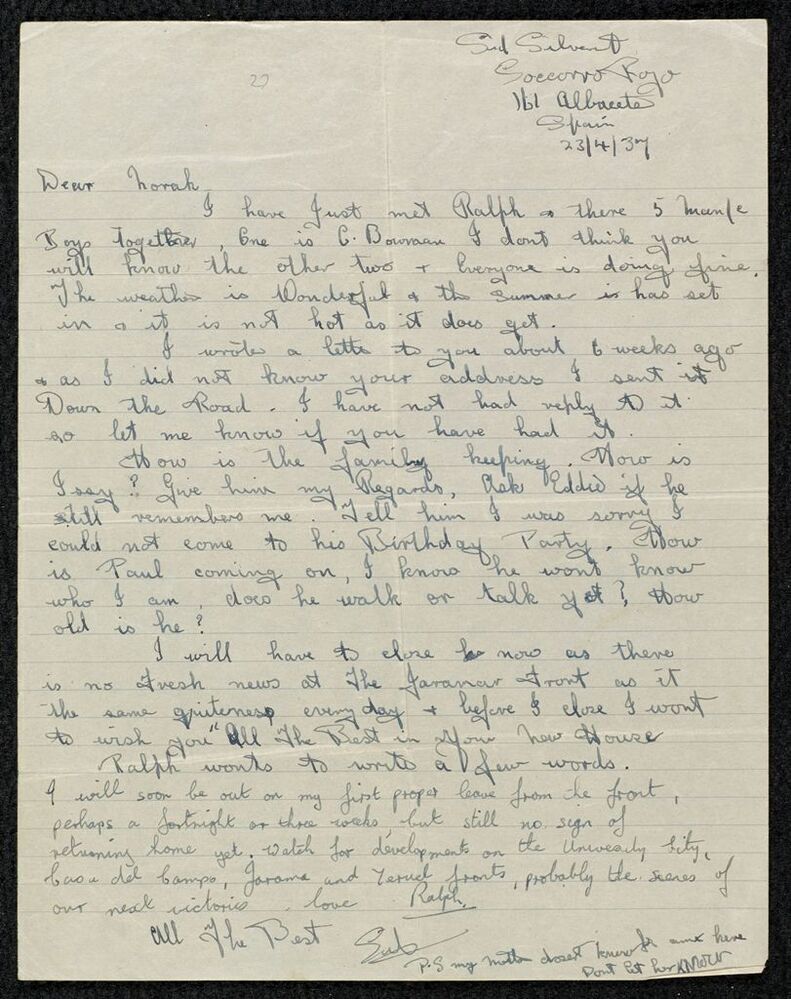 27
Sid Silvert
Soccorro Rojo
161 Albacete
Spain
23/4/37
Dear Norah
I have Just met Ralph & there 5 Manc
Boys Together, One is C. Bowman I dont think you
will know the other two & Everyone is doing fine.
The weather is Wonderful & the Summer is has set
in & it is not hot as it does get.
I wrote a letter to you about 6 weeks ago
& as I did not know your address I sent it
Down the Road. I have not had reply to it
so let me know if you have had it.
How is the family keeping. How is
Issy? Give him my Regards, Ask Eddie if he
still remembers me. Tell him I was sorry I
could not come to his Birthday Party. How
is Paul coming on, I know he wont know
who I am, does he walk or talk yet? How
old is he?
I will have to close now as there
is no Fresh news at The Jaramar Front as it
the same quiteness every day & before I close I wont
to wish you "All The Best in Your New House
Ralph wonts to write a few words.
I will soon be out on my first proper leave from the front,
perhaps a fortnight or three weeks, but still no sign of
returning home yet. Watch for developments on the University City,
Casa del Campo, Jarama and Teruel fronts, probably the scenes of
our next victories. love Ralph.
All The Best Sid
P.S my mother dosent know I am here
Dont let her KNOW